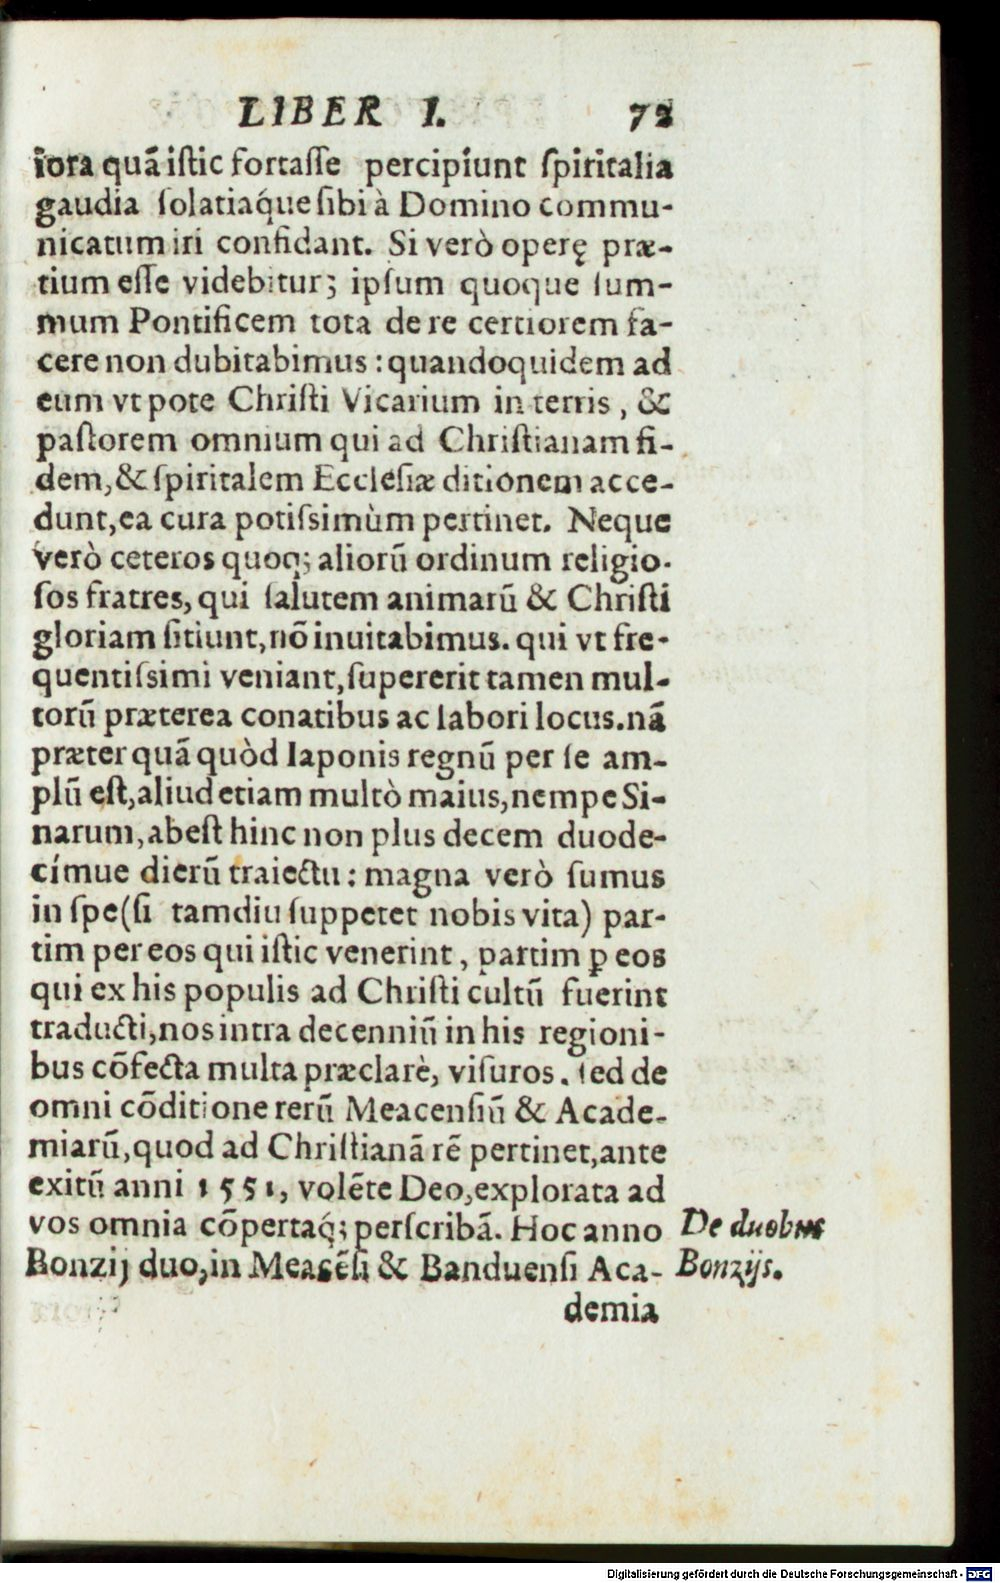 LIBER I. 72
iora quā istic fortasse percipiunt spiritalia
gaudia solatiaq́ue sibi à Domino commu-
nicatum iri confidant. Si verò operę præ-
tium esse videbitur; ipsum quoque sum-
mum Pontificem tota de re certiorem fa-
cere non dubitabimus: quandoquidem ad
eum vt pote Christi Vicarium in terris, &
pastorem omnium qui ad Christianam fi-
dem, & spiritalem Ecclesiæ ditionem acce-
dunt, ea cura potissimùm pertinet. Neque
verò ceteros quoq; aliorū ordinum religio-
sos fratres, qui salutem animarū & Christi
gloriam sitiunt, nō inuitabimus. qui vt fre-
quentissimi veniant, supererit tamen mul-
torū præterea conatibus ac labori locus. nā
præter quā quòd Iaponis regnū per se am-
plū est, aliud etiam multò maius, nempe Si-
narum, abest hinc non plus decem duode-
címue dierū traiectu: magna verò sumus
in spe (si tamdiu suppetet nobis vita) par-
tim per eos qui istic venerint, partim ꝑ eos
qui ex his populis ad Christi cultū fuerint
traducti, nos intra decenniū in his regioni-
bus cōfecta multa præclarè, visuros. sed de
omni cōditione rerū Meacensiū & Acade-
miarū, quod ad Christianā rē pertinet, ante
exitū anni 1551, volēte Deo, explorata ad
vos omnia cōpertaq́; perscribā. Hoc anno
Bonzij duo, in Meacēsi & Banduensi Aca-
De duobus
Bonzijs.
demia
Digitalisierung gefördert durch die Deutsche Forschungsgemeinschaft - DFG